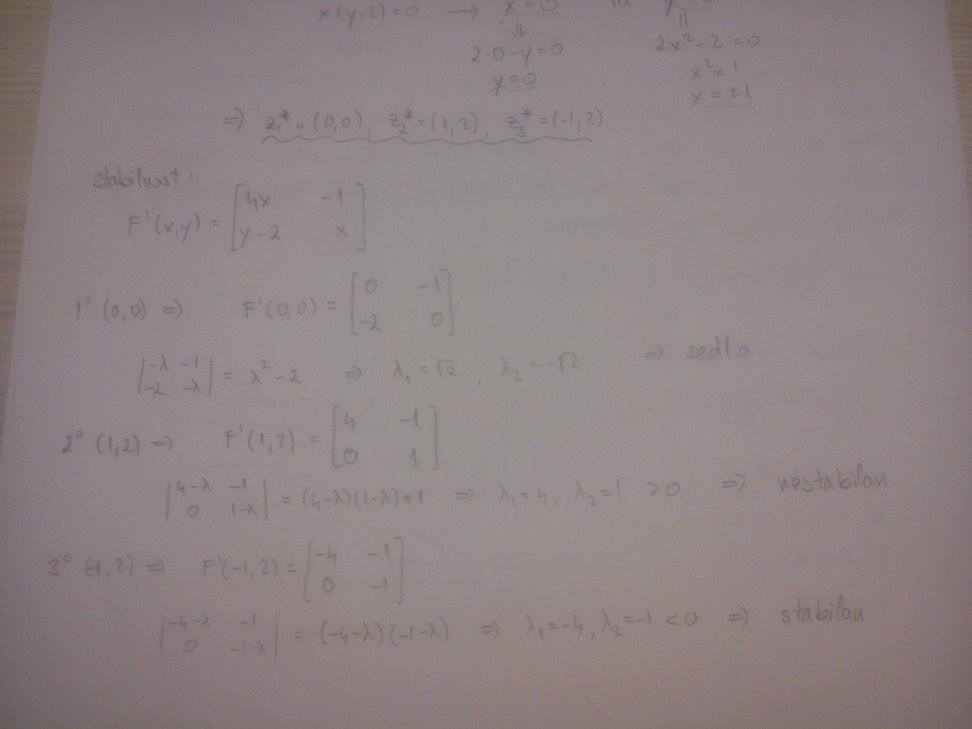 x(y-2)=0 → x=0
⇓ ⇓
2·0-y=0 2x²-2=0
y=0 x²=1
x=±1
⇒ z₁*=(0,0), z₂*=(1,2), z₃*=(-1,2)
stabilnost:
F'(x,y) = [4x -1
y-2 x]
1° (0,0) ⇒ F'(0,0) = [0 -1
-2 0]
|-λ -1
-2 -λ| = λ²-2 ⇒ λ₁=√2, λ₂=-√2 ⇒ sedlo
2° (1,2) ⇒ F'(1,2) = [4 -1
0 1]
|4-λ -1
0 1-λ| = (4-λ)(1-λ)+1 ⇒ λ₁=4, λ₂=1 >0 ⇒ nestabilan
3° (-1,2) ⇒ F'(-1,2) = [-4 -1
0 -1]
|-4-λ -1
0 -1-λ| = (-4-λ)(-1-λ) ⇒ λ₁=-4, λ₂=-1 <0 ⇒ stabilan